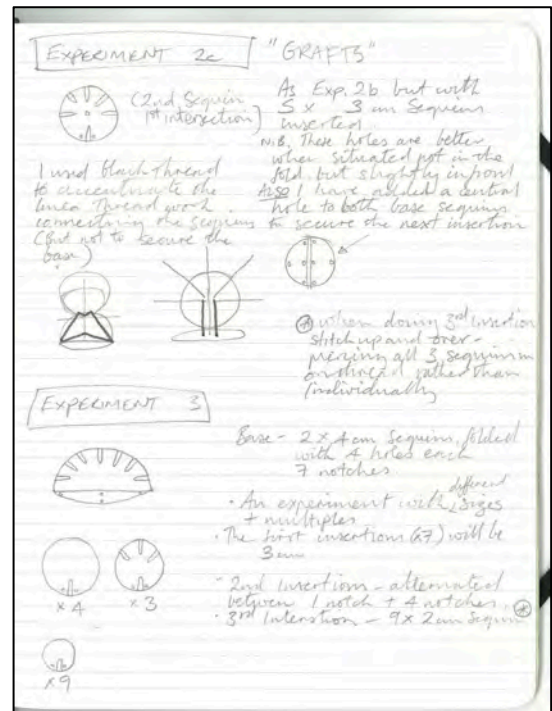 EXPERIMENT 2c
"GRAFTS"
(2nd Sequin
1st intersection)
As Exp. 2b but with
5 x 3 cm Sequins
inserted.
N.B. These holes are better
when situated not in the
fold, but slightly in front
ALSO I have added a central
hole to both base sequins
to secure the next insertion
I used black thread
to accentuate the
linea thread work
connecting the sequins
(but not to secure the
base)
* when doing 3rd insertion
stitch up and over -
all 3 sequins in
one thread rather than
individually
EXPERIMENT 3
Base - 2 x 4 cm Sequins, folded
with 4 holes each
7 notches
· An experiment with different sizes
+ multiples
· The first insertions (x7) will be
3 cm
- 2nd Insertion - alternated
between 1 notch + 4 notches *
· 3rd - 9 x 2 cm Sequin
x 4
x 3
x 9